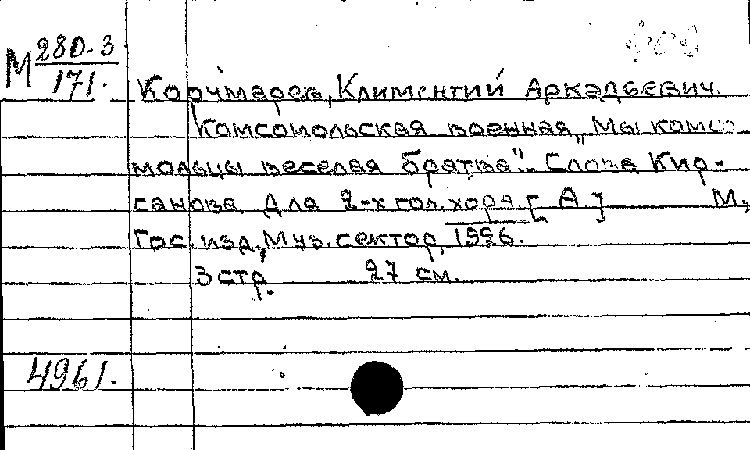 М 280-3
171.
Корчмарев, Климентий Аркадьевич.
Комсомольская военная „Мы комсо
мольцы веселая братва". Слова Кир-
санова. Для 2-х гол. хора. [А] М,
Гос. изд., Муз. сектор, 1926.
3 стр. 27 см.
4961.